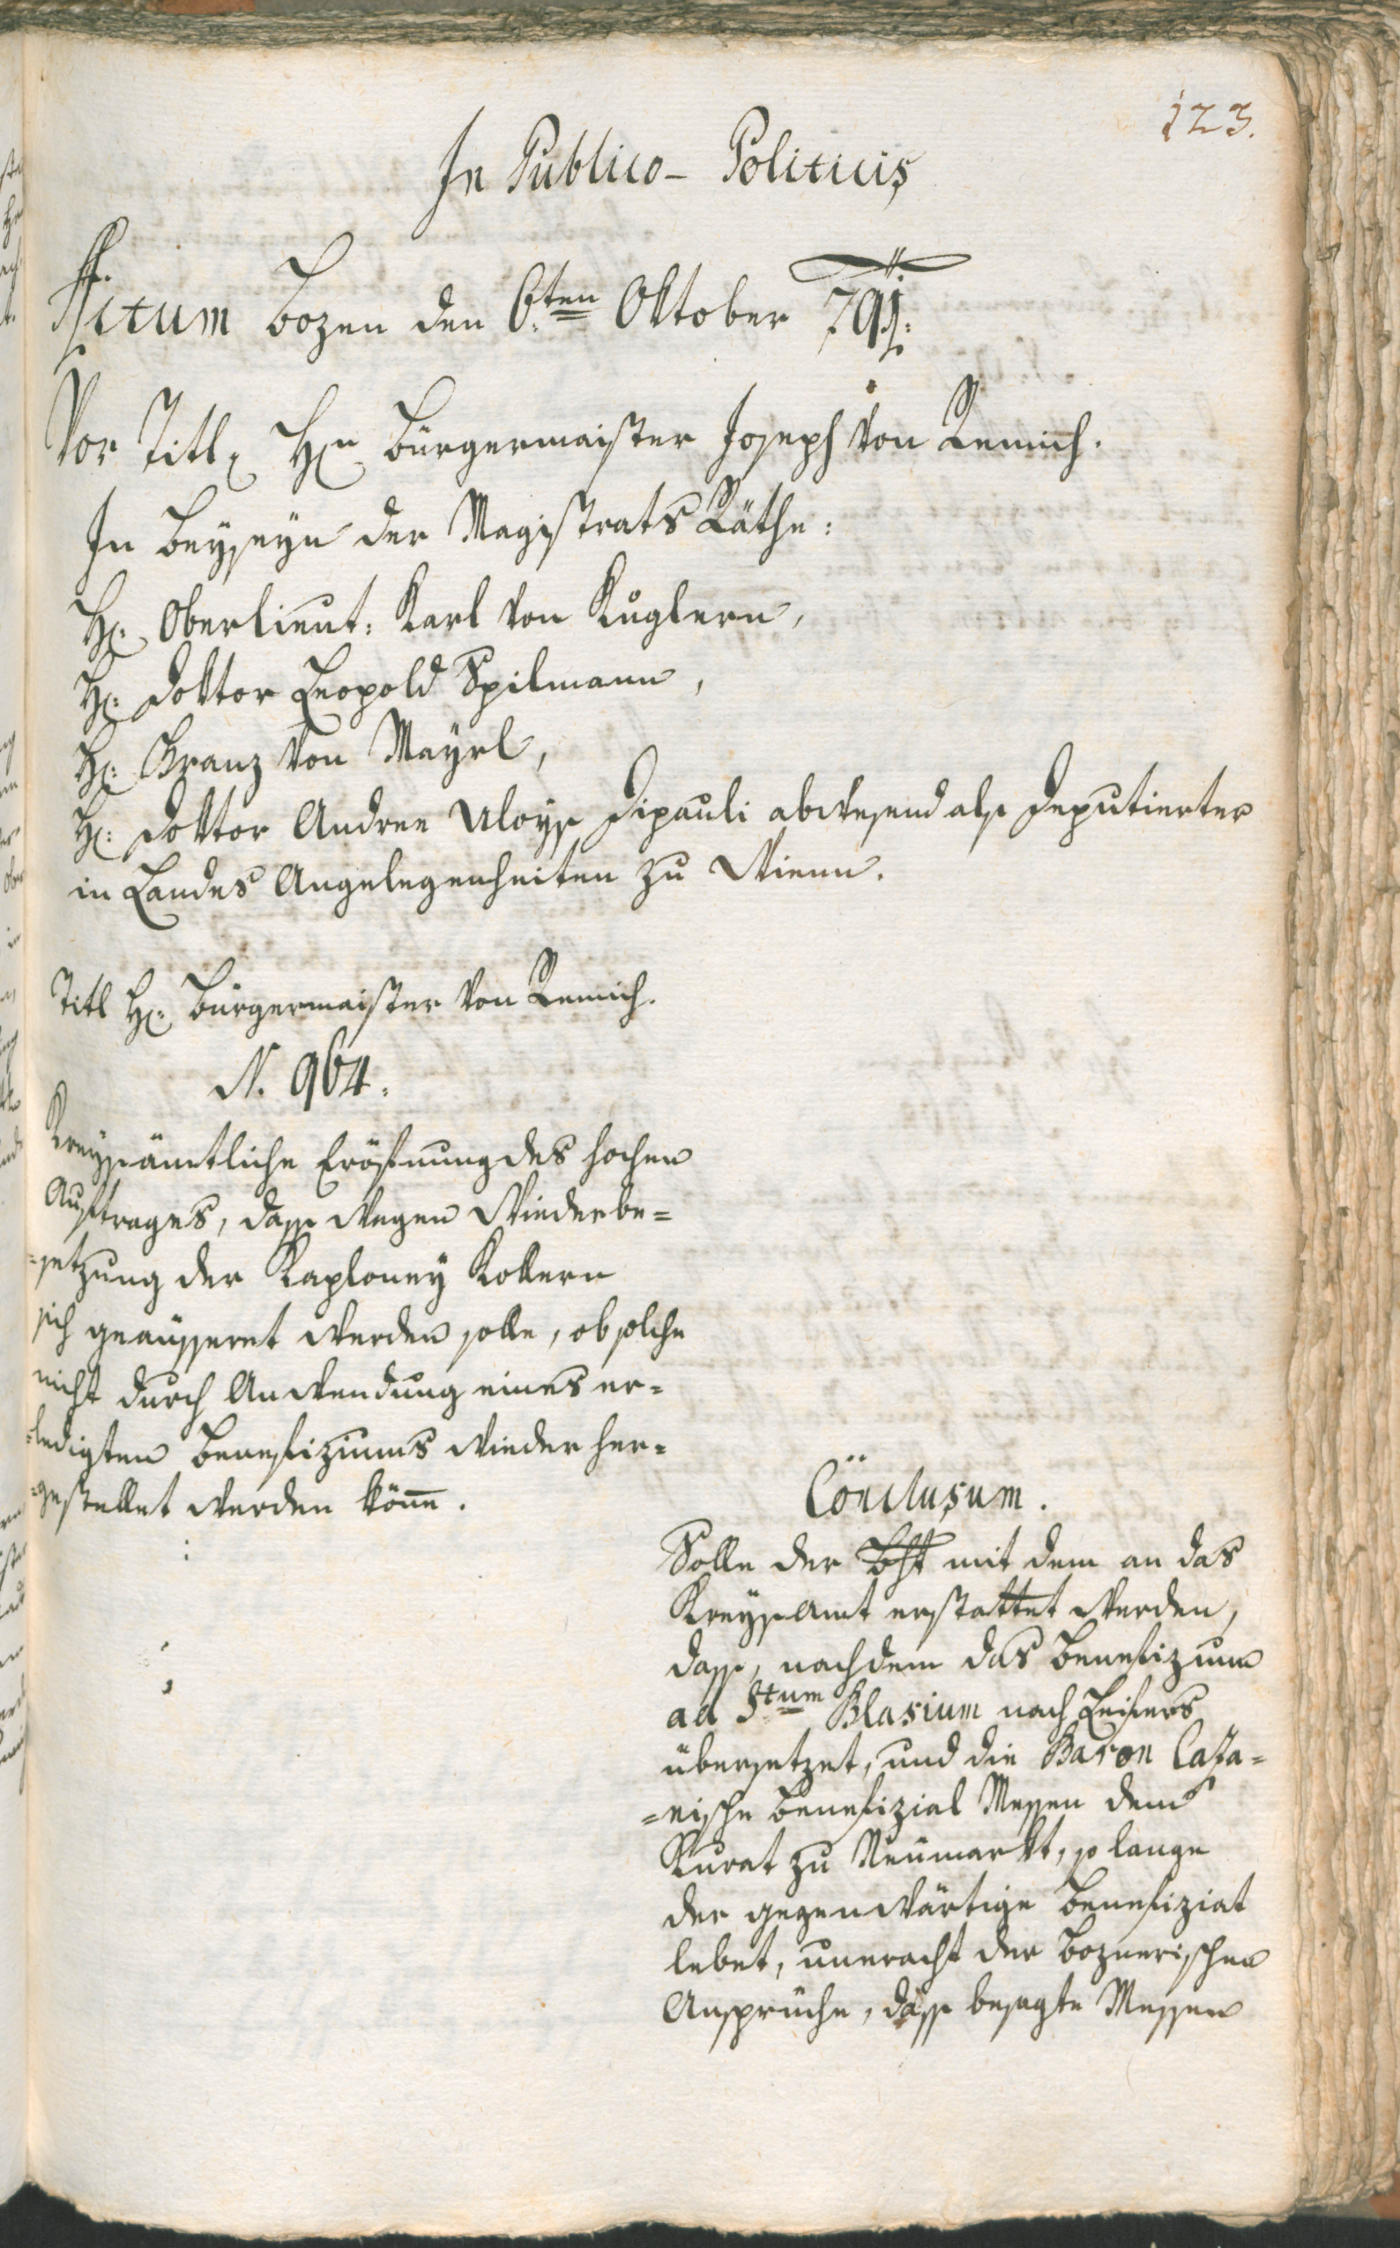 123.
In Publico-Politicis
Actum Bozen den 6:ten Oktober 791:
Vor Titl: Hrn Bürgermaister Joseph von Remich.
In Beyseyn der Magistrats Räthe:
H: Oberlieut: Karl von Kuglern,
H: Doktor Leopold Spilmann,
H: Franz von Mayrl,
H: Doktor Andree Aloys Dipauli abwesend als Deputierter
in Landes Angelegenheiten zu Wienn.
Titl H: Bürgermaister von Remich.
N. 964.
Kreysämtliche Eröfnung des hochen
Auftrages, dass wegen Wiederbe=
=setzung der Kaploney Kollern
sich geäusseret werden solle, ob solche
nicht durch Anwendung eines er=
=ledigten Benefiziums wieder her=
=gestellet werden könne.
Conclusum.
Solle der Bht mit dem an das
Kreysamt erstattet werden,
dass, nachdem das Benefizium
ad Stum Blasium nach Leifers
übersetzet, und die Baron Caza=
=nische Benefizial Messen dem
Kurat zu Neumarkt, so lange
der gegenwärtige Benefiziat
lebet, uneracht der Boznerischen
Ansprüche, dass besagte Messen